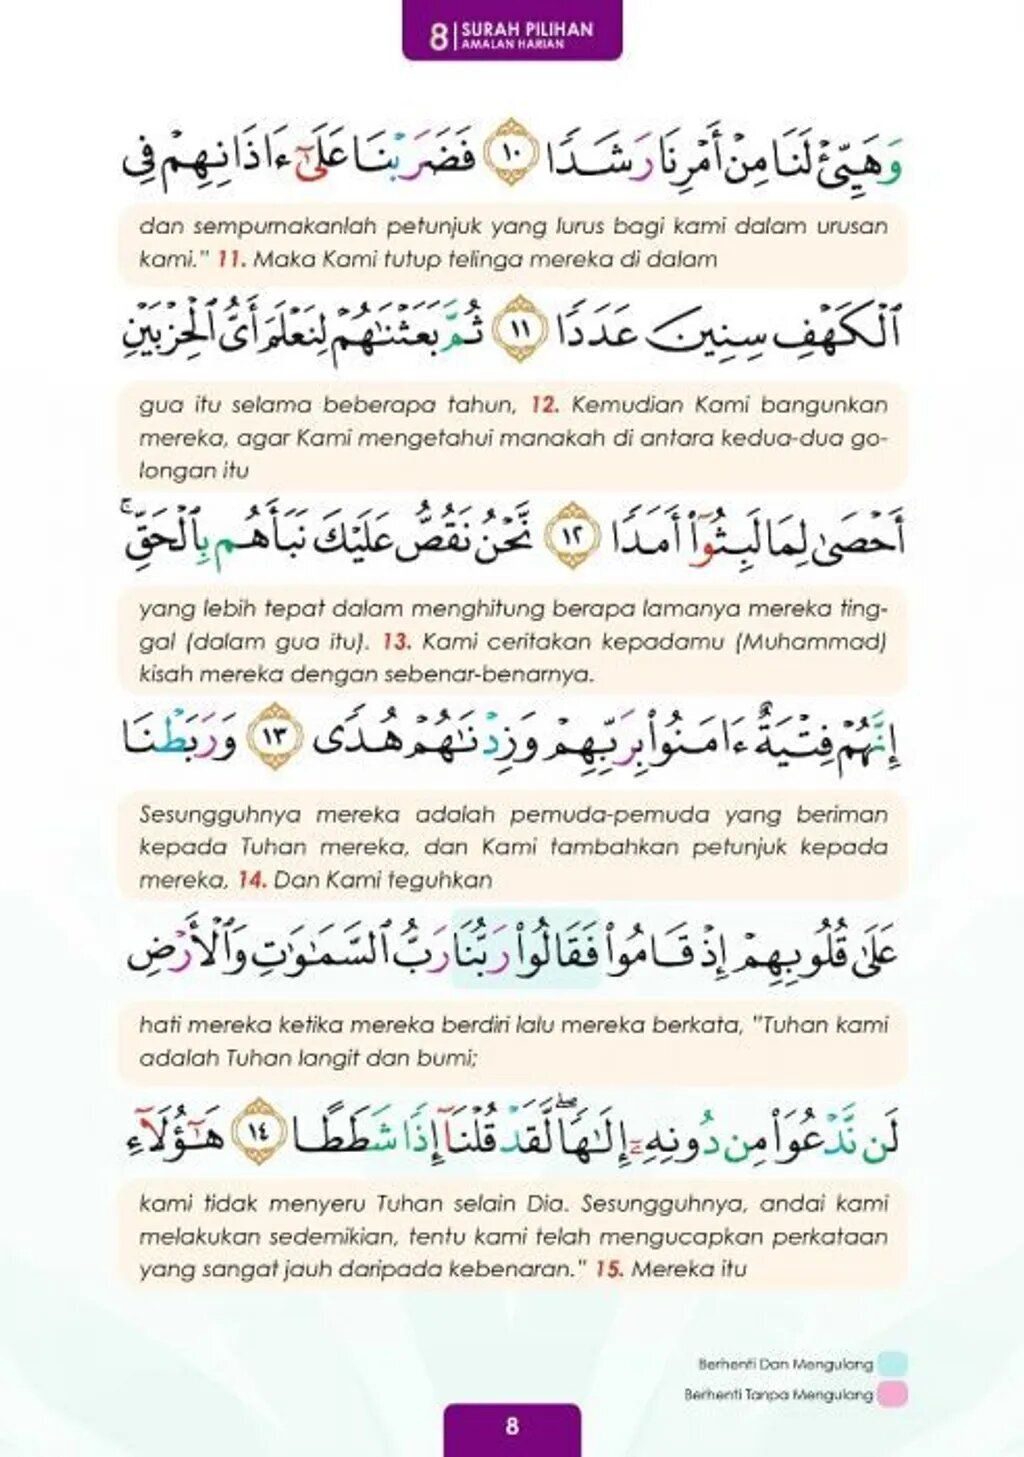 8 | SURAH PILIHAN
AMALAN HARIAN
وَهَيِّئْ لَنَا مِنْ أَمْرِنَا رَشَدًا ١٠ فَضَرَبْنَا عَلَىٰٓ ءَاذَانِهِمْ فِى
dan sempurnakanlah petunjuk yang lurus bagi kami dalam urusan
kami." 11. Maka Kami tutup telinga mereka di dalam
ٱلْكَهْفِ سِنِينَ عَدَدًا ١١ ثُمَّ بَعَثْنَٰهُمْ لِنَعْلَمَ أَىُّ ٱلْحِزْبَيْنِ
gua itu selama beberapa tahun, 12. Kemudian Kami bangunkan
mereka, agar Kami mengetahui manakah di antara kedua-dua go-
longan itu
أَحْصَىٰ لِمَا لَبِثُوٓا۟ أَمَدًا ١٢ نَّحْنُ نَقُصُّ عَلَيْكَ نَبَأَهُم بِٱلْحَقِّ ۚ
yang lebih tepat dalam menghitung berapa lamanya mereka ting-
gal (dalam gua itu). 13. Kami ceritakan kepadamu (Muhammad)
kisah mereka dengan sebenar-benarnya.
إِنَّهُمْ فِتْيَةٌ ءَامَنُوا۟ بِرَبِّهِمْ وَزِدْنَٰهُمْ هُدًى ١٣ وَرَبَطْنَا
Sesungguhnya mereka adalah pemuda-pemuda yang beriman
kepada Tuhan mereka, dan Kami tambahkan petunjuk kepada
mereka, 14. Dan Kami teguhkan
عَلَىٰ قُلُوبِهِمْ إِذْ قَامُوا۟ فَقَالُوا۟ رَبُّنَا رَبُّ ٱلسَّمَٰوَٰتِ وَٱلْأَرْضِ
hati mereka ketika mereka berdiri lalu mereka berkata, "Tuhan kami
adalah Tuhan langit dan bumi;
لَن نَّدْعُوَا۟ مِن دُونِهِۦٓ إِلَٰهًا ۖ لَّقَدْ قُلْنَآ إِذًا شَطَطًا ١٤ هَٰٓؤُلَآءِ
kami tidak menyeru Tuhan selain Dia. Sesungguhnya, andai kami
melakukan sedemikian, tentu kami telah mengucapkan perkataan
yang sangat jauh daripada kebenaran." 15. Mereka itu
Berhenti Dan Mengulang
Berhenti Tanpa Mengulang
8